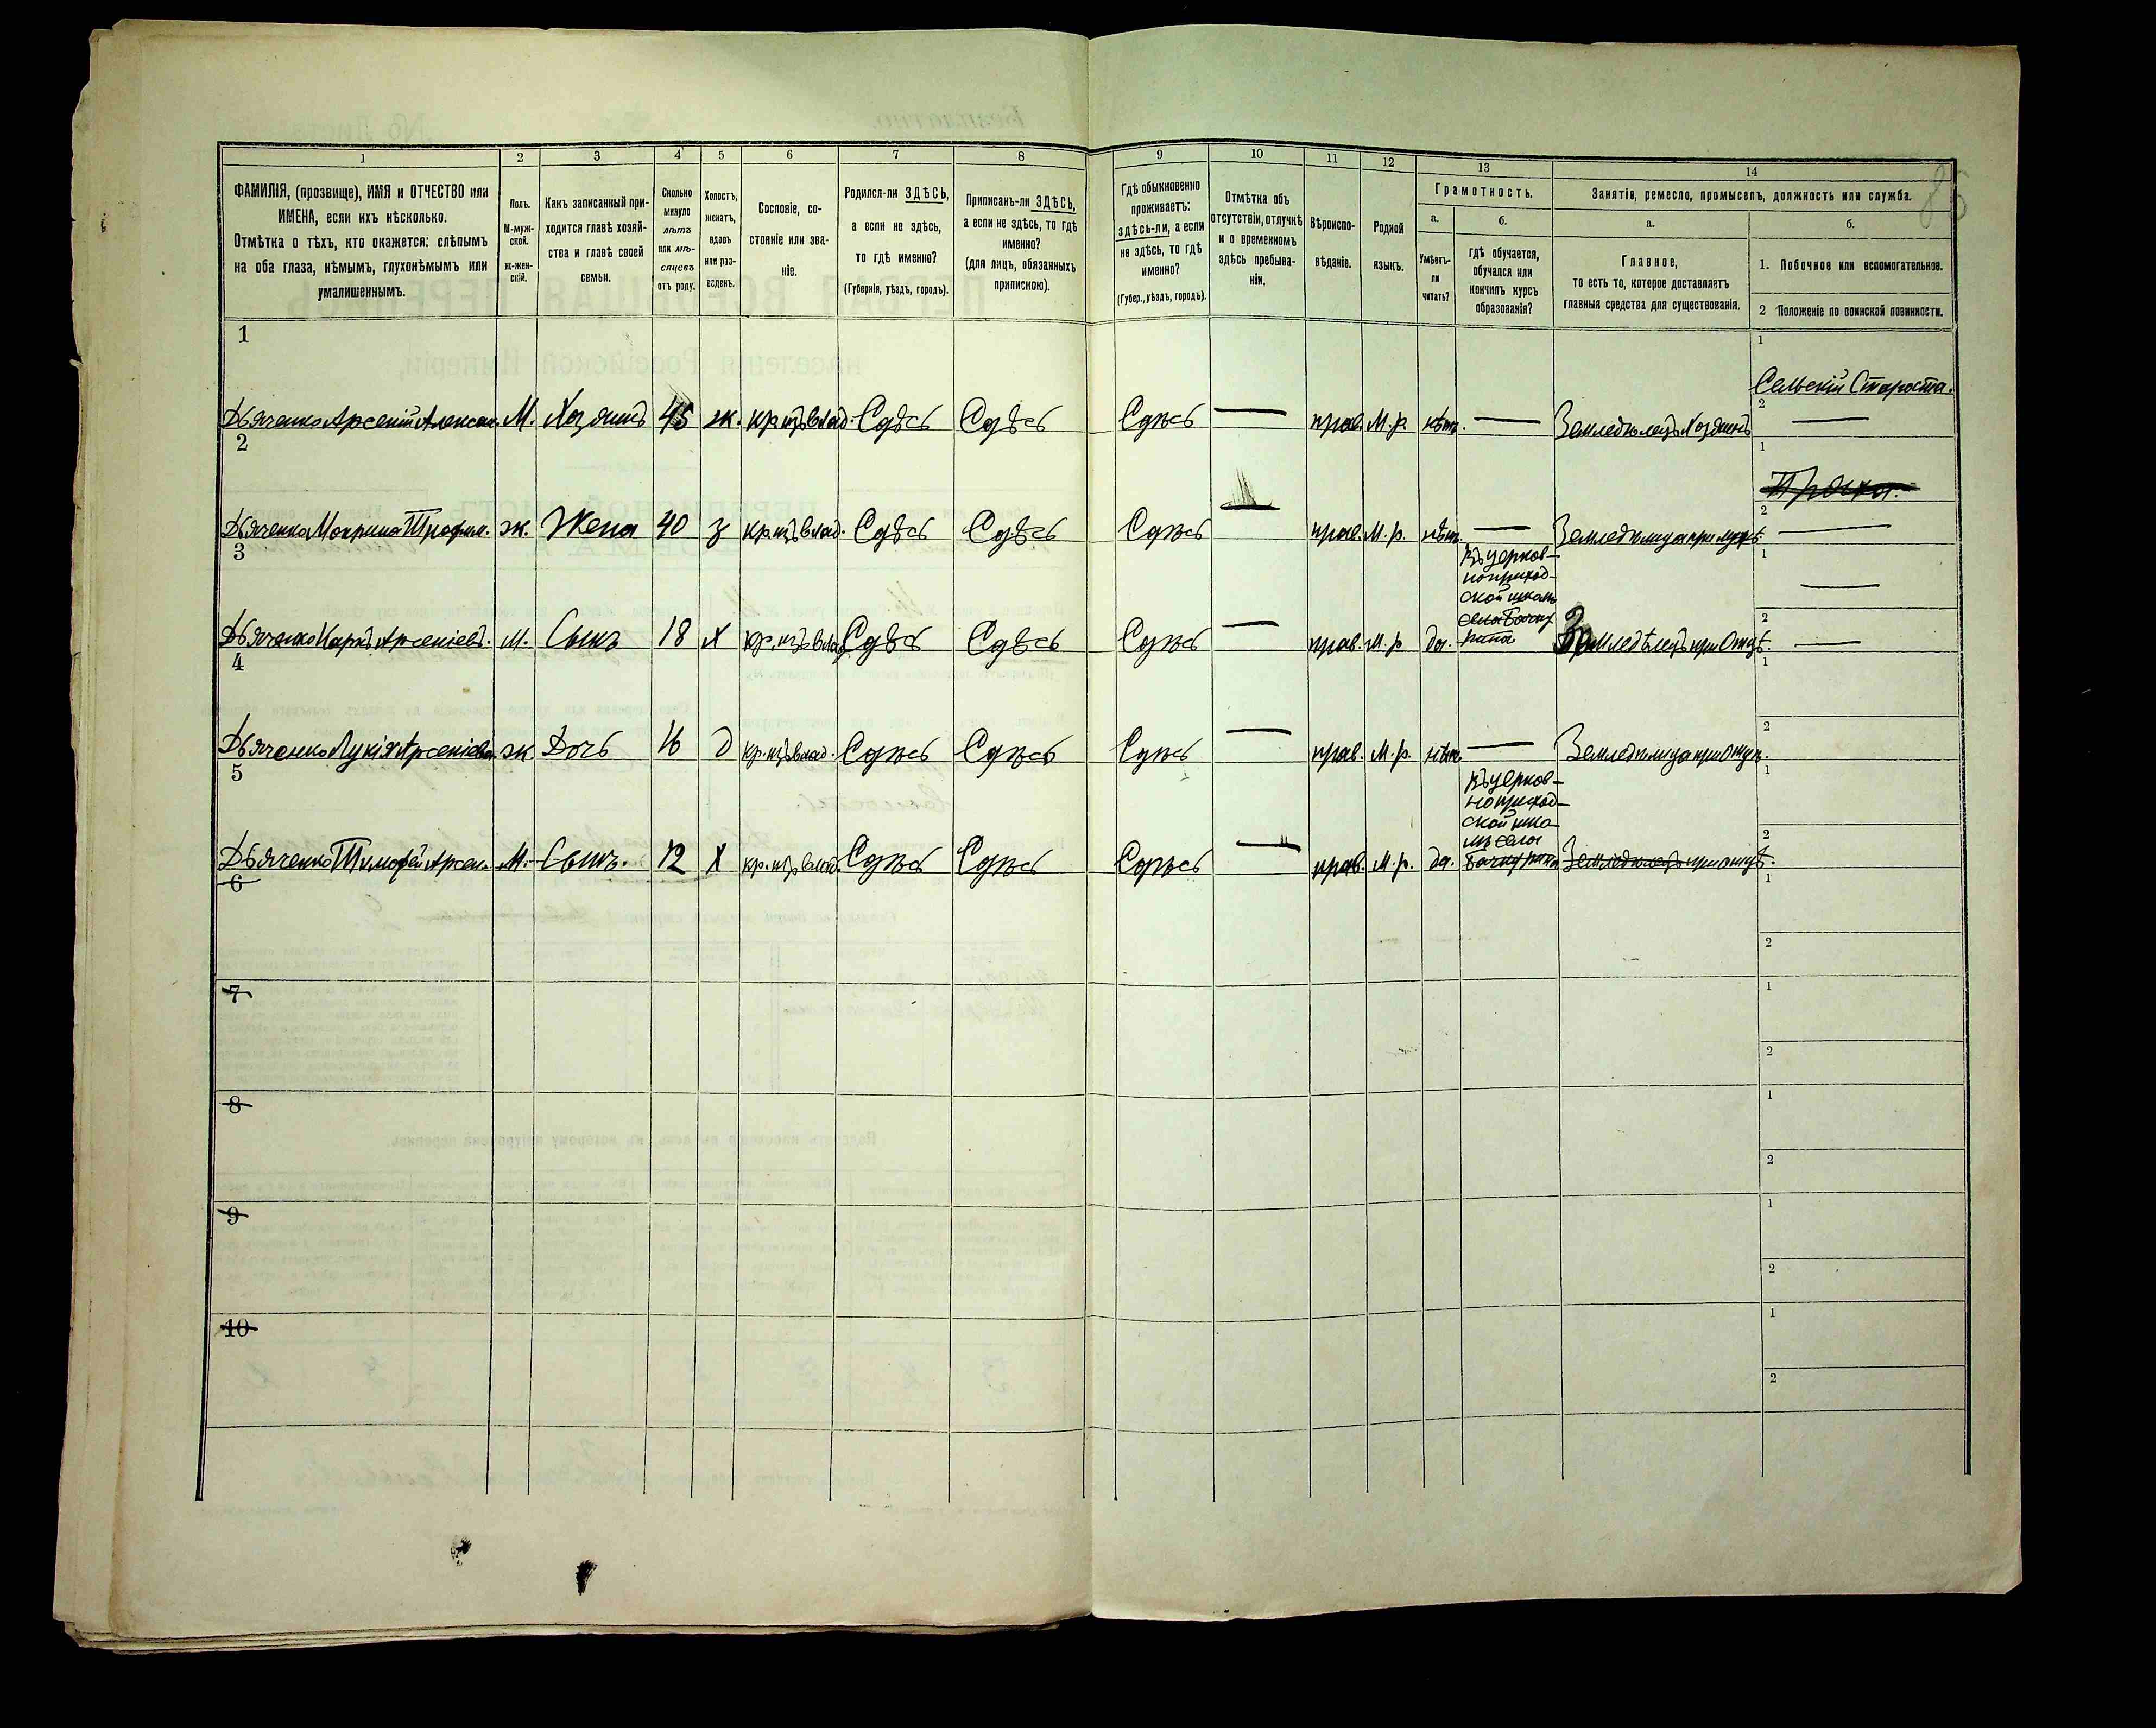 1 2 3 4 5 6 7 8 9 10 11 12 13 14
ФАМИЛІЯ, (прозвище), ИМЯ и ОТЧЕСТВО или
ИМЕНА, если ихъ нѣсколько.
Отмѣтка о тѣхъ, кто окажется: слѣпымъ
на оба глаза, нѣмымъ, глухонѣмымъ или
умалишеннымъ.
Полъ.
М-муж-
ской.
ж-жен-
скій.
Какъ записанный при-
ходится главѣ хозяй-
ства и главѣ своей
семьи.
Сколько
минуло
лѣтъ
или мѣ-
сяцевъ
отъ роду.
Холостъ,
женатъ,
вдовъ
или раз-
веденъ.
Сословіе, со-
стояніе или зва-
ніе.
Родился-ли ЗДѢСЬ,
а если не здѣсь,
то гдѣ именно?
(Губернія, уѣздъ, городъ).
Приписанъ-ли ЗДѢСЬ,
а если не здѣсь, то гдѣ
именно?
(для лицъ, обязанныхъ
припискою).
Гдѣ обыкновенно
проживаетъ:
здѣсь-ли, а если
не здѣсь, то гдѣ
именно?
(Губер., уѣздъ, городъ).
Отмѣтка объ
отсутствіи, отлучкѣ
и о временномъ
здѣсь пребыва-
ніи.
Вѣроиспо-
вѣданіе.
Родной
языкъ.
Грамотность.
а.
Умѣетъ-
ли
читать?
б.
гдѣ обучается,
обучался или
кончилъ курсъ
образованія?
Занятія, ремесло, промыселъ, должность или служба.
а.
Главное,
то есть то, которое доставляетъ
главныя средства для существованія.
б.
1. Побочное или вспомогательное.
2 Положеніе по воинской повинности.
1
1
Сельскій Староста.
2
Дьяченко Арсеній Алексан. М. Хозяинъ 45 ж. кр.изъ влад. Сдѣсь Сдѣсь Сдѣсь — прав. М.р. нѣтъ. — Земледѣлецъ Хозяинъ —
2
1
2
Дьяченко Мокрина Трофим. ж. Жена 40 з кр.изъ влад. Сдѣсь Сдѣсь Сдѣсь — прав. М.р. нѣтъ. — Земледѣлица при мужѣ. —
3
1
—
Въ церков-
ноприход-
ской школѣ
села
2
Дьяченко Марко Арсеніевъ. м. Сынъ 18 Х кр.изъ влад Сдѣсь Сдѣсь Сдѣсь — прав. М.р да. Земледѣлецъ при Отцѣ. —
4
1
2
Дьяченко Лукія Арсеніева ж. Дочь 16 д кр.изъ влад. Сдѣсь Сдѣсь Сдѣсь — прав. М.р. нѣтъ — Земледѣлица при Отцѣ.
5
1
Въ церков-
ноприход-
ской шко-
лѣ села
2
Дьяченко Тимофей Арсен. М. Сынъ. 12 Х кр.изъ влад. Сдѣсь Сдѣсь Сдѣсь — прав. М.р. да. Земледѣлецъ при отцѣ.
6
1
2
7
1
2
8
1
2
9
1
2
10
1
2